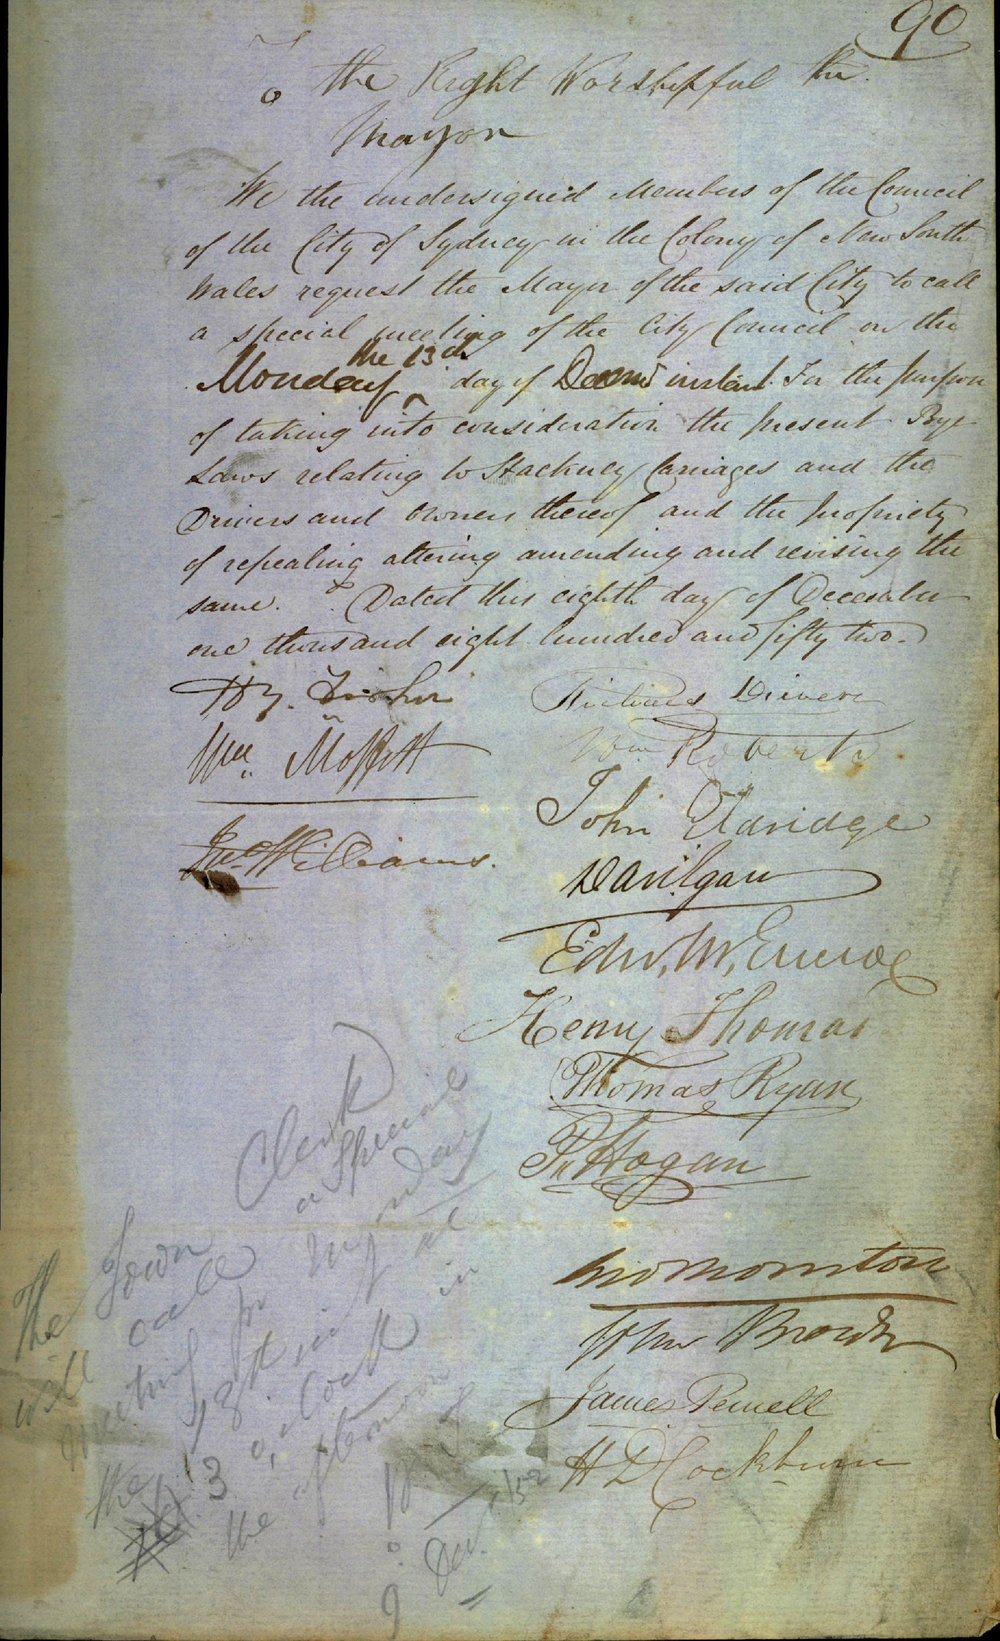 90
To the Right Worshipful the
Mayor
We the undersigned Members of the Council
of the City of Sydney in the Colony of New South
Wales request the Mayor of the said City to call
a special meeting of the City Council on the
Monday the 13th day of instant For the purpose
of taking into consideration the present Bye
Laws relating to Hackney Carriages and the
Drivers and Owners thereof and the propriety
of repealing altering amending and revising the
same. Dated this eighth day of December
one thousand eight hundred and fifty two.
Hy.
Wm Moffitt
Jno Williams.
Driver
Wm Roberts
John Eldridge
Dan Egan
Edw. W.
Henry Thomas
Thomas Ryan
P. Hogan
John
James Pemell
H D Cockburn
The Town Clerk
will call a Special
meeting for Monday
the 13th inst at
3 o'clock in
the afternoon
9 Dec. /52